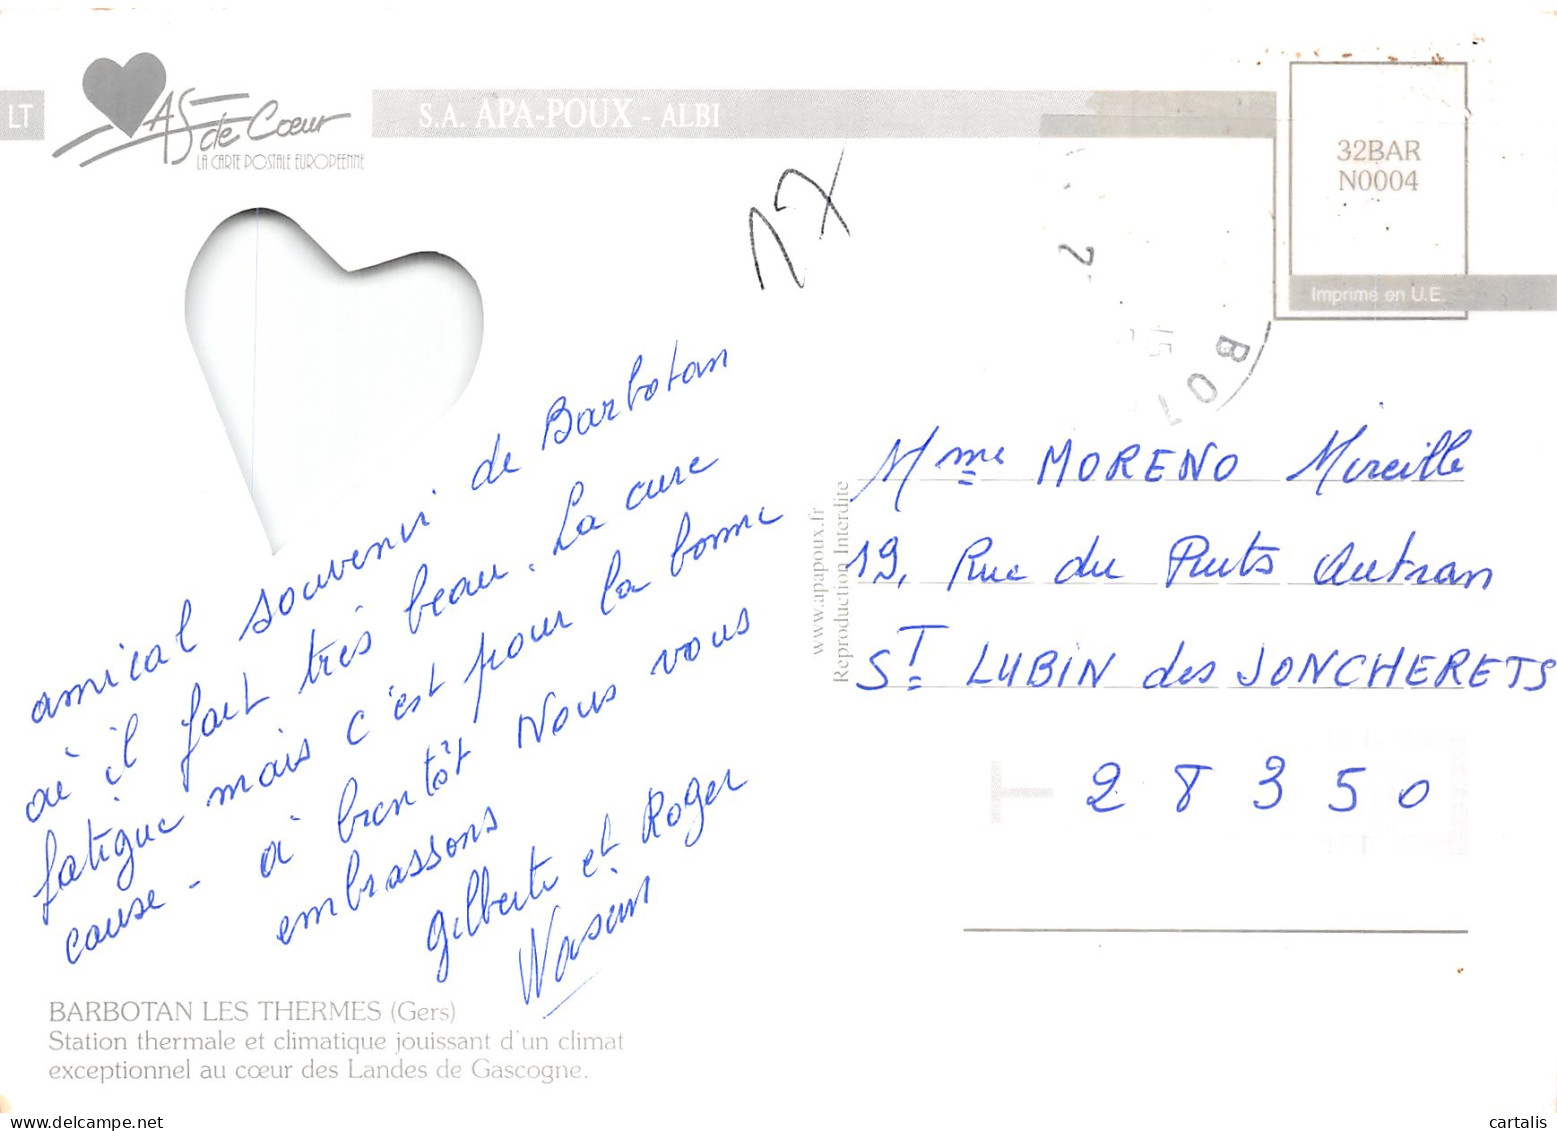 LT
AS de Cœur
LA CARTE POSTALE EUROPEENNE
S.A. APA-POUX - ALBI
32BAR
N0004
Imprimé en U.E.
17
2
15
BOT
amical souvenir de Barbotan
où il fait très beau. La cure
fatigue mais c'est pour la bonne
cause - à bientôt Nous vous
embrassons
Gilberte et Roger
www.apapoux.fr
Reproduction Interdite
Mme MORENO Mireille
19, Rue du Puits Autran
ST LUBIN des JONCHERETS
28350
BARBOTAN LES THERMES (Gers)
Station thermale et climatique jouissant d'un climat
exceptionnel au cœur des Landes de Gascogne.
cartalis